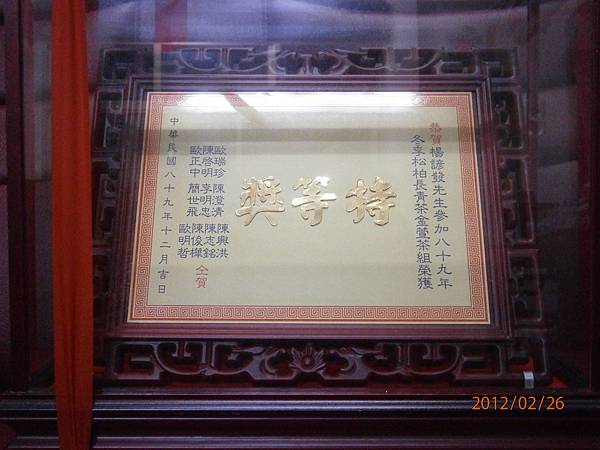 恭賀楊諺發先生參加八十九年
冬季松柏長青茶金萱茶組榮獲
特等獎
歐瑞珍 陳澄清 陳興洪
陳啓明 李明忠 陳志銘
歐正中 簡世飛 陳俊樺
歐明哲
仝賀
中華民國八十九年十二月吉日
2012/02/26